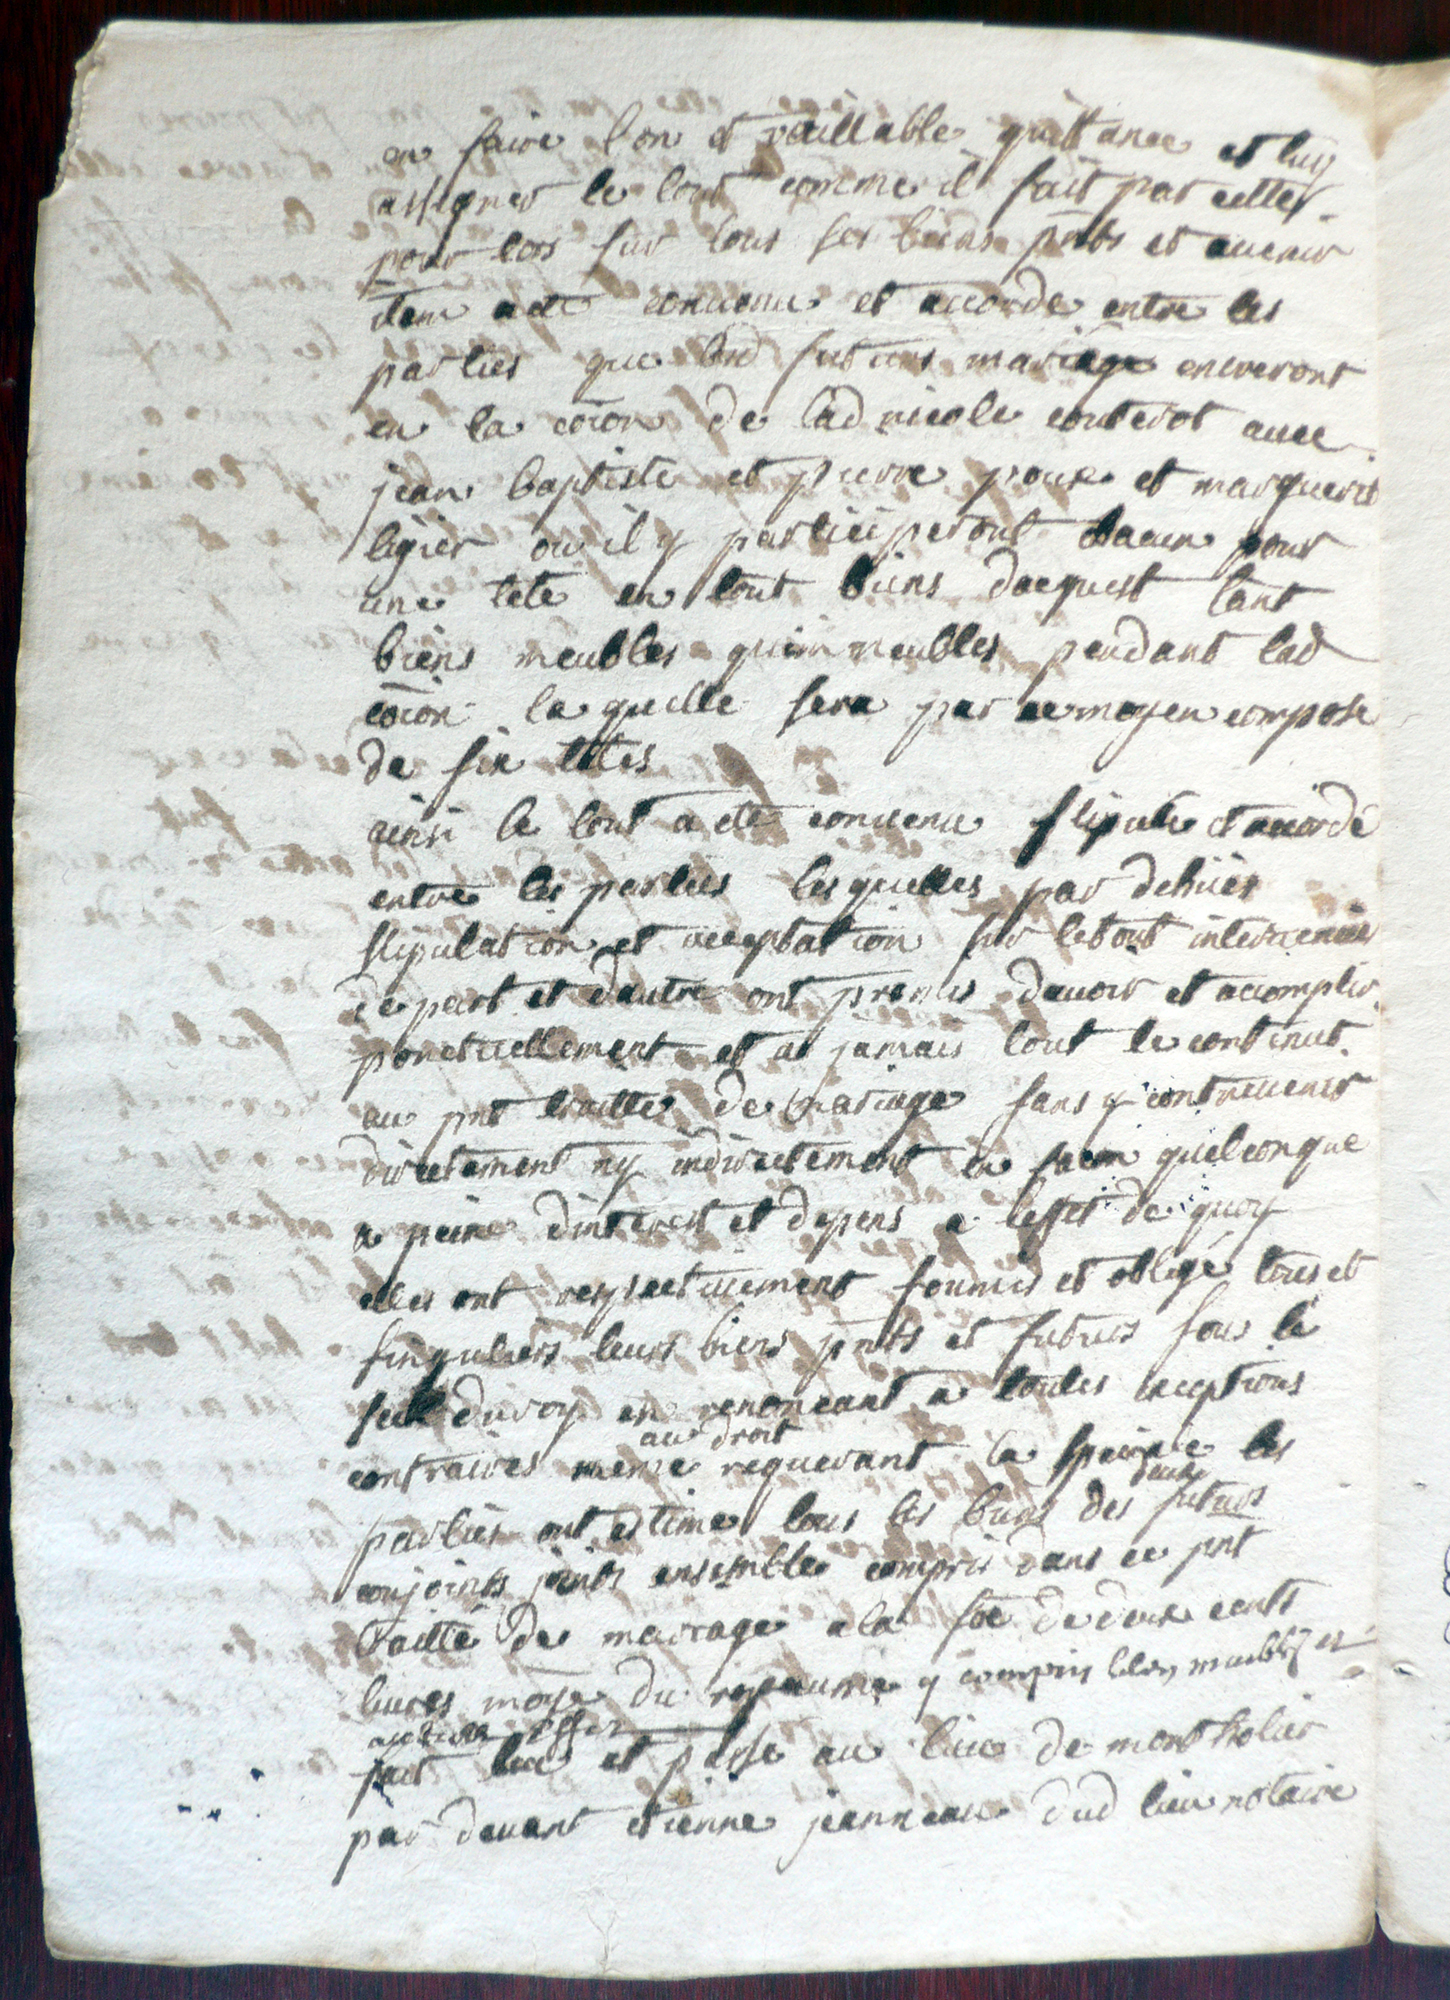 en faire bon et vaillable quittance et luy
assigner le tout comme il fait par cette
pour lors sur tous ses biens pnts et avenir
item a ete convenu et accorde entre les
parties que lesd futurs mariage entreront
en la coion de lad nicole couterot avec
jean baptiste et pierre roux et marguerit
ligier ou il y participeront chacun pour
une tete en tout biens dacquest tant
biens meubles quimmeubles pendant lad
coion laquelle sera par ce moyen compose
de six tetes
ainsi le tout a ete convenu stipule et accorde
entre les parties lesquelles par dehües
stipulation et acceptation sur le tout intervenües
de part et dautre ont promis davoir et accomplir
ponctuellement et a jamais tout le continut
au pnt traitté de mariage sans y contrevenir
directement ny indirectement en facon quelconque
a peine dinterest et depens a leffet de quoy
elles ont respectivement soumis et obligé tous et
singuliers leurs biens pnts et futurs sous le
seel du roy en renoncant a toutes exceptions
au droit
contraires meme requerant la les
deux
parties ont estimé tous les biens des futurs
conjoints joints ensemble compris dans ce pnt
traitté de mariage a la soe de deux cents
livres du royaume y compris meubles et
autres effet
fait leu et passe au lieu de montholier
par devant etienne jeanneau dud lieu notaire